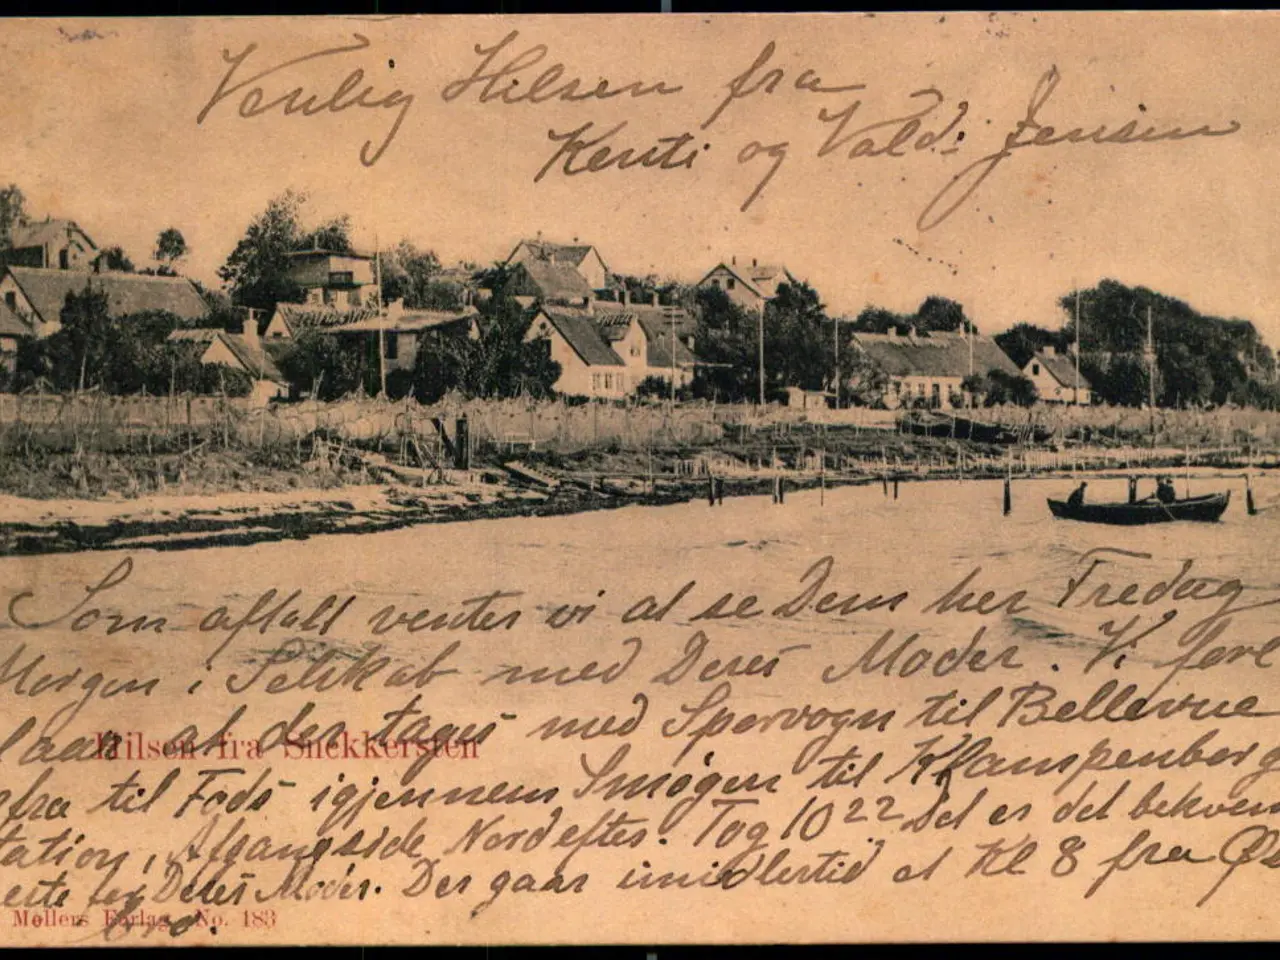 Venlig Hilsen fra
Kenti og Vald: Jensen
Som aftalt venter vi at se Dem her Fredag
Morgen i Selskab med Deres Moder. Vi fore
slaar at der tages med Sporvogn til Bellevue
Hilsen fra Snekkersten
fra til Fods igjennem Smøgen til Klampenborg
tation, Afgangside Nordeftes. Tog 10 22 Det er det bekvem
este for Deres Moder. Der gaar imidlertid et Kl 8 fra Øs
bro.
Møllers Forlag. No. 183